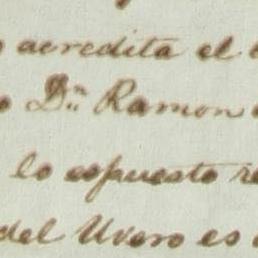 acredita el
Dⁿ Ramon
lo espuesto
del Uvero es